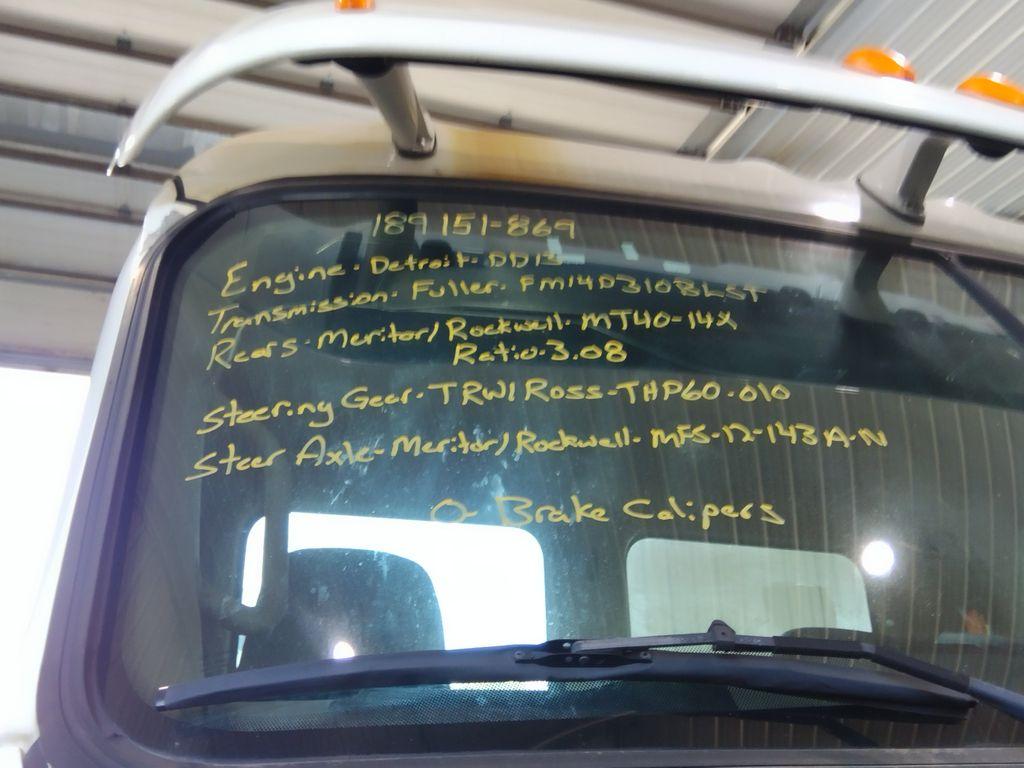 189151-869
Engine - Detroit - DD13
Transmission - Fuller - FM14D310BLST
Rears - Meritor/Rockwell - MT40-14X
Ratio - 3.08
Steering Gear - TRW/Ross - THP60-010
Steer Axle - Meritor/Rockwell - MFS-12-143A-N
0 Brake Calipers